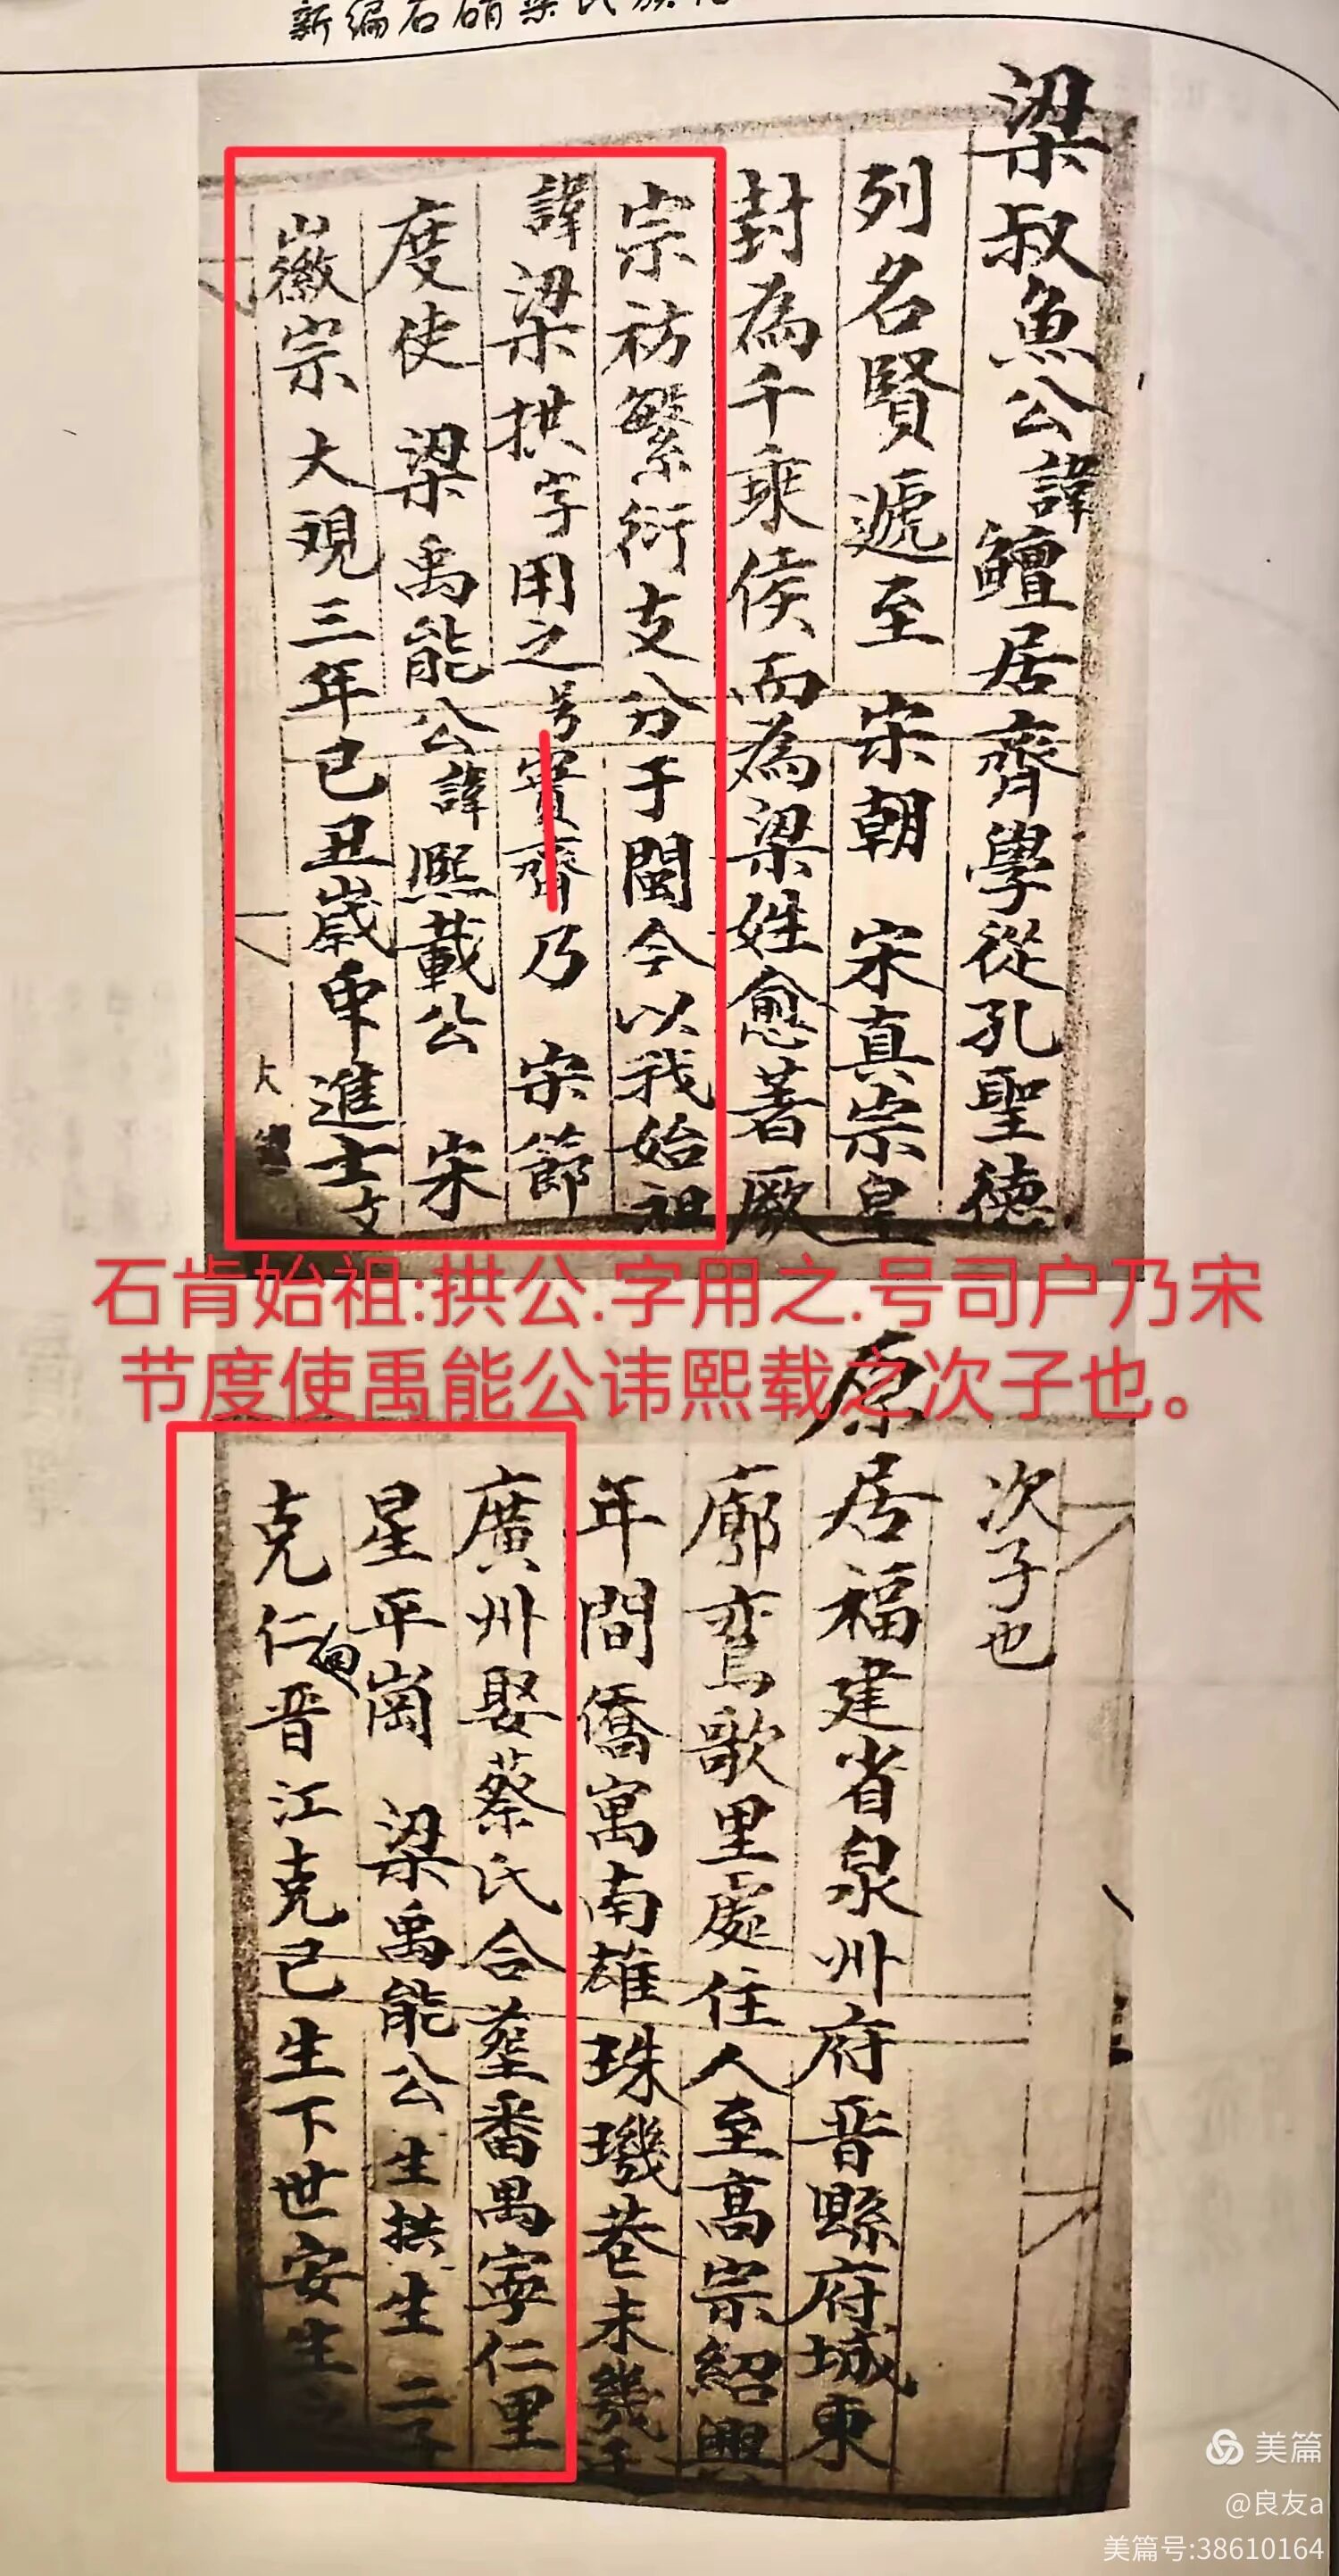 新编石硝梁氏族
梁叔魚公諱鱣居齊學從孔聖德
列名賢遞至 宋朝 宋真宗皇
封為千乘侯而為梁姓愈著厥
宗祊繁衍支分于閩今以我始祖
諱梁拱字用之号實齋乃 宋節
度使 梁禹能公諱熙載公 宋
徽宗大观三年己丑歲中進士文
石肯始祖:拱公.字用之.号司户乃宋
节度使禹能公讳熙载之次子也。
次子也
原居福建省泉州府晋縣府城東
廓鸞歌里處住人至高宗紹興
年間僑寓南雄珠璣巷未幾
廣州娶蔡氏合塟番禺寧仁里
星平崗 梁禹能公生拱生二子
克仁回晋江克己生下世安生
美篇
@良友a
美篇号:38610164